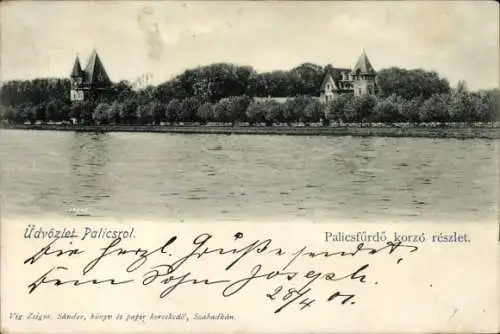 Üdvözlet Palicsról.
Palicsfürdő korzó részlet.
Die herzl. Grüße sendet
Dein Sohn Joseph
28/4 01.
Vig Zsigm. Sándor, könyv és papir kereskedő, Szabadkán.